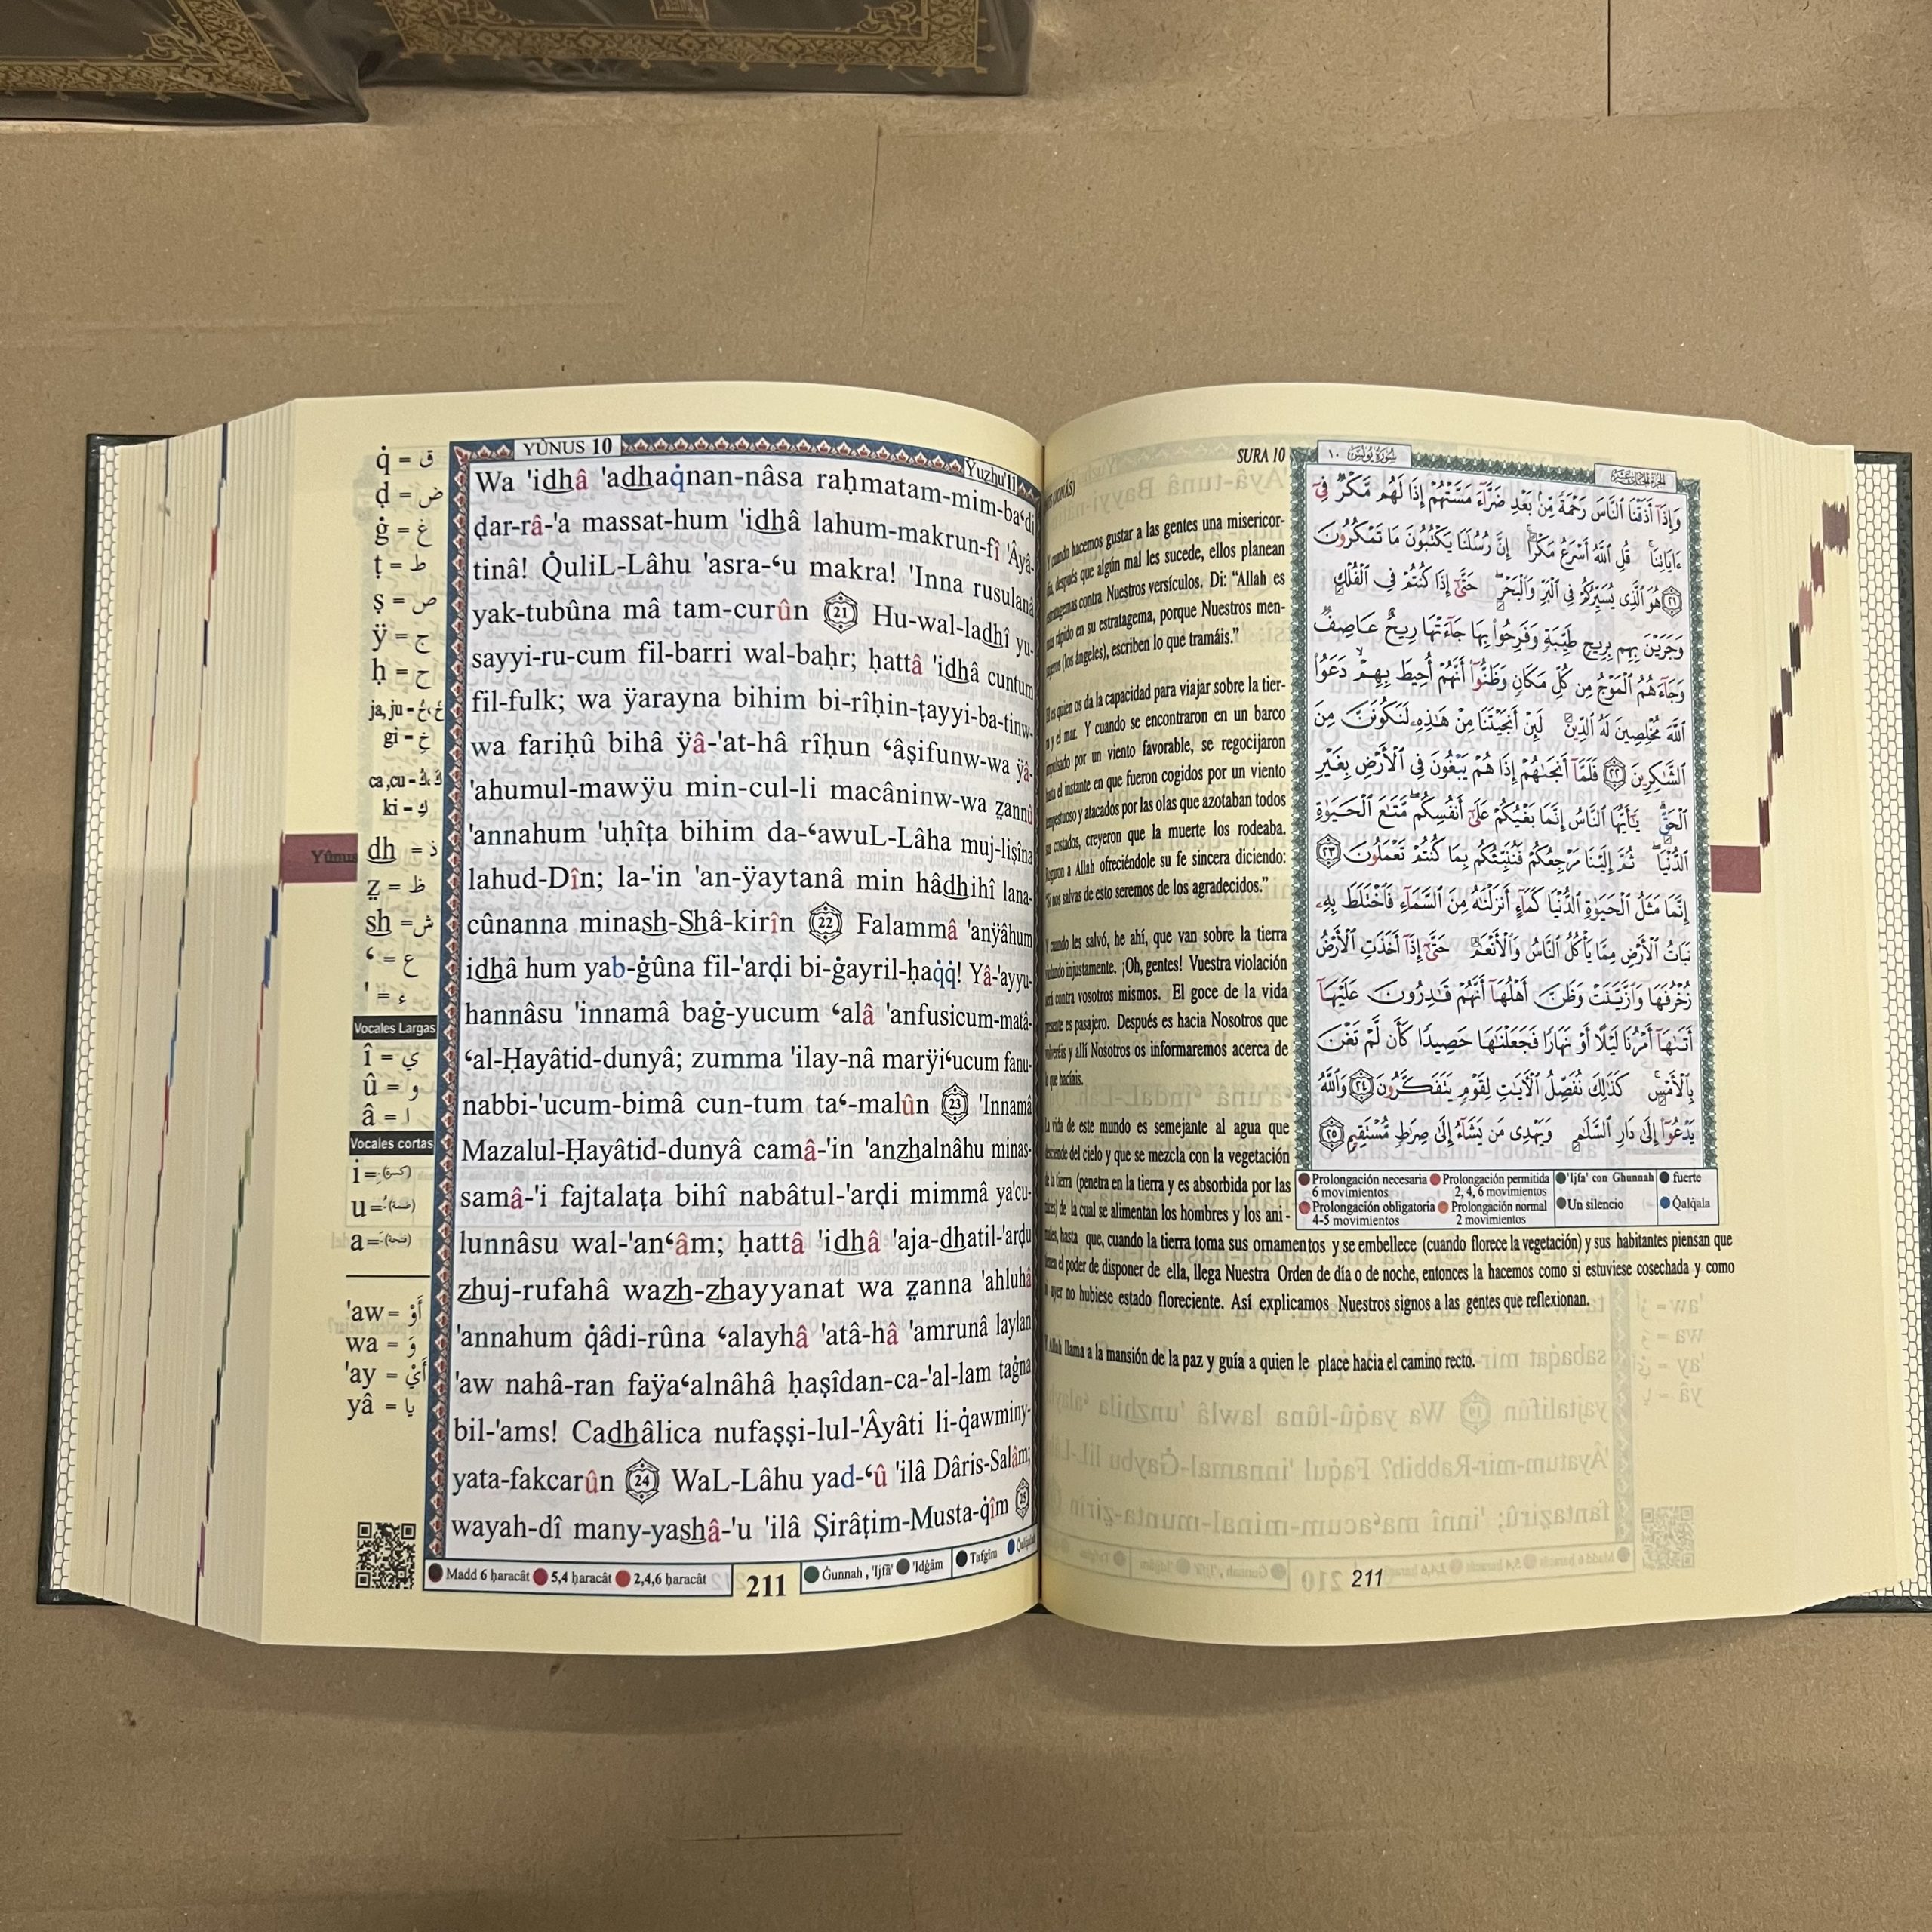 YÛNUS 10
Ÿuzhu'11
Wa 'idhâ 'adhaq̇nan-nâsa raḥmatam-mim-ba‘di
ḍar-râ-'a massat-hum 'idhâ lahum-makrun-fî 'Âyâ-
tinâ! Q̇uliL-Lâhu 'asra-‘u makra! 'Inna rusulanâ
yak-tubûna mâ tam-curûn 21 Hu-wal-ladhî yu-
sayyi-ru-cum fil-barri wal-baḥr; ḥattâ 'idhâ cuntum
fil-fulk; wa ÿarayna bihim bi-rîḥin-ṭayyi-ba-tinw-
wa fariḥû bihâ ÿâ-'at-hâ rîḥun ‘âṣifunw-wa ÿâ-
'ahumul-mawÿu min-cul-li macâninw-wa ẓannû
'annahum 'uḥîṭa bihim da-‘awuL-Lâha muj-liṣîna
lahud-Dîn; la-'in 'an-ÿaytanâ min hâdhihî lana-
cûnanna minash-Shâ-kirîn 22 Falammâ 'anÿâhum
idhâ hum yab-ġûna fil-'arḍi bi-ġayril-ḥaq̇q̇! Yâ-'ayyu-
hannâsu 'innamâ baġ-yucum ‘alâ 'anfusicum-matâ-
‘al-Ḥayâtid-dunyâ; zumma 'ilay-nâ marÿi‘ucum fanu-
nabbi-'ucum-bimâ cun-tum ta‘-malûn 23 'Innamâ
Mazalul-Ḥayâtid-dunyâ camâ-'in 'anzhalnâhu minas-
samâ-'i fajtalaṭa bihî nabâtul-'arḍi mimmâ ya'cu-
lunnâsu wal-'an‘âm; ḥattâ 'idhâ 'aja-dhatil-'arḍu
zhuj-rufahâ wazh-zhayyanat wa ẓanna 'ahluhâ
'annahum q̇âdi-rûna ‘alayhâ 'atâ-hâ 'amrunâ laylan
'aw nahâ-ran faÿa‘alnâhâ ḥaṣîdan-ca-'al-lam taġna
bil-'ams! Cadhâlica nufaṣṣi-lul-'Âyâti li-q̇awminy-
yata-fakcarûn 24 WaL-Lâhu yad-‘û 'ilâ Dâris-Salâm;
wayah-dî many-yashâ-'u 'ilâ Ṣirâṭim-Musta-q̇îm 25
Madd 6 ḥaracât 5,4 ḥaracât 2,4,6 ḥaracât
211
Ġunnah , 'Ijfâ' 'Idġâm Tafgîm
q̇ = ق
ḍ = ض
ġ = غ
ṭ = ط
ṣ = ص
ÿ = ج
ḥ = ح
ja, ju - خَ، خُ
gi - خِ
ca ,cu - كَ، كُ
ki - كِ
Yûnus
dh = ذ
ẓ = ظ
sh = ش
‘ = ع
' = ء
Vocales Largas
î = ي
û = و
â = ا
Vocales cortas
i = (كسرة)
u = (ضمة)
a = (فتحة)
'aw = أَوْ
wa = وَ
'ay = أَيْ
yâ = يا
SURA 10
cuando hacemos gustar a las gentes una misericor-
después que algún mal les sucede, ellos planean
estratagemas contra Nuestros versículos. Di: “Allah es
más rápido en su estratagema, porque Nuestros men-
(los ángeles), escriben lo que tramáis.”
es quien os da la capacidad para viajar sobre la tier-
y el mar. Y cuando se encontraron en un barco
por un viento favorable, se regocijaron
el instante en que fueron cogidos por un viento
y atacados por las olas que azotaban todos
costados, creyeron que la muerte los rodeaba.
a Allah ofreciéndole su fe sincera diciendo:
nos salvas de esto seremos de los agradecidos.”
cuando les salvó, he ahí, que van sobre la tierra
injustamente. ¡Oh, gentes! Vuestra violación
contra vosotros mismos. El goce de la vida
es pasajero. Después es hacia Nosotros que
y allí Nosotros os informaremos acerca de
que hacíais.
vida de este mundo es semejante al agua que
desciende del cielo y que se mezcla con la vegetación
la tierra (penetra en la tierra y es absorbida por las
de la cual se alimentan los hombres y los ani -
hasta que, cuando la tierra toma sus ornamentos y se embellece (cuando florece la vegetación) y sus habitantes piensan que
el poder de disponer de ella, llega Nuestra Orden de día o de noche, entonces la hacemos como si estuviese cosechada y como
ayer no hubiese estado floreciente. Así explicamos Nuestros signos a las gentes que reflexionan.
Allah llama a la mansión de la paz y guía a quien le place hacia el camino recto.
211
سُورَةُ يُونُسَ ١٠
وَإِذَآ أَذَقْنَا ٱلنَّاسَ رَحْمَةً مِّنۢ بَعْدِ ضَرَّآءَ مَسَّتْهُمْ إِذَا لَهُم مَّكْرٌ فِىٓ
ءَايَاتِنَا ۚ قُلِ ٱللَّهُ أَسْرَعُ مَكْرًا ۚ إِنَّ رُسُلَنَا يَكْتُبُونَ مَا تَمْكُرُونَ
٢١ هُوَ ٱلَّذِى يُسَيِّرُكُمْ فِى ٱلْبَرِّ وَٱلْبَحْرِ ۖ حَتَّىٰٓ إِذَا كُنتُمْ فِى ٱلْفُلْكِ
وَجَرَيْنَ بِهِم بِرِيحٍ طَيِّبَةٍ وَفَرِحُوا۟ بِهَا جَآءَتْهَا رِيحٌ عَاصِفٌ
وَجَآءَهُمُ ٱلْمَوْجُ مِن كُلِّ مَكَانٍ وَظَنُّوٓا۟ أَنَّهُمْ أُحِيطَ بِهِمْ ۙ دَعَوُا۟
ٱللَّهَ مُخْلِصِينَ لَهُ ٱلدِّينَ لَئِنْ أَنجَيْتَنَا مِنْ هَٰذِهِۦ لَنَكُونَنَّ مِنَ
ٱلشَّٰكِرِينَ ٢٢ فَلَمَّآ أَنجَىٰهُمْ إِذَا هُمْ يَبْغُونَ فِى ٱلْأَرْضِ بِغَيْرِ
ٱلْحَقِّ ۗ يَٰٓأَيُّهَا ٱلنَّاسُ إِنَّمَا بَغْيُكُمْ عَلَىٰٓ أَنفُسِكُم ۖ مَّتَٰعَ ٱلْحَيَوٰةِ
ٱلدُّنْيَا ۖ ثُمَّ إِلَيْنَا مَرْجِعُكُمْ فَنُنَبِّئُكُم بِمَا كُنتُمْ تَعْمَلُونَ ٢٣
إِنَّمَا مَثَلُ ٱلْحَيَوٰةِ ٱلدُّنْيَا كَمَآءٍ أَنزَلْنَٰهُ مِنَ ٱلسَّمَآءِ فَٱخْتَلَطَ بِهِۦ
نَبَاتُ ٱلْأَرْضِ مِمَّا يَأْكُلُ ٱلنَّاسُ وَٱلْأَنْعَٰمُ حَتَّىٰٓ إِذَآ أَخَذَتِ ٱلْأَرْضُ
زُخْرُفَهَا وَٱزَّيَّنَتْ وَظَنَّ أَهْلُهَآ أَنَّهُمْ قَٰدِرُونَ عَلَيْهَآ
أَتَىٰهَآ أَمْرُنَا لَيْلًا أَوْ نَهَارًا فَجَعَلْنَٰهَا حَصِيدًا كَأَن لَّمْ تَغْنَ
بِٱلْأَمْسِ ۚ كَذَٰلِكَ نُفَصِّلُ ٱلْـَٔايَٰتِ لِقَوْمٍ يَتَفَكَّرُونَ ٢٤ وَٱللَّهُ
يَدْعُوٓا۟ إِلَىٰ دَارِ ٱلسَّلَٰمِ وَيَهْدِى مَن يَشَآءُ إِلَىٰ صِرَٰطٍ مُّسْتَقِيمٍ ٢٥
Prolongación necesaria 6 movimientos
Prolongación permitida 2, 4, 6 movimientos
'Ijfa' con Ghunnah
fuerte
Prolongación obligatoria 4-5 movimientos
Prolongación normal 2 movimientos
Un silencio
Q̇alq̇ala